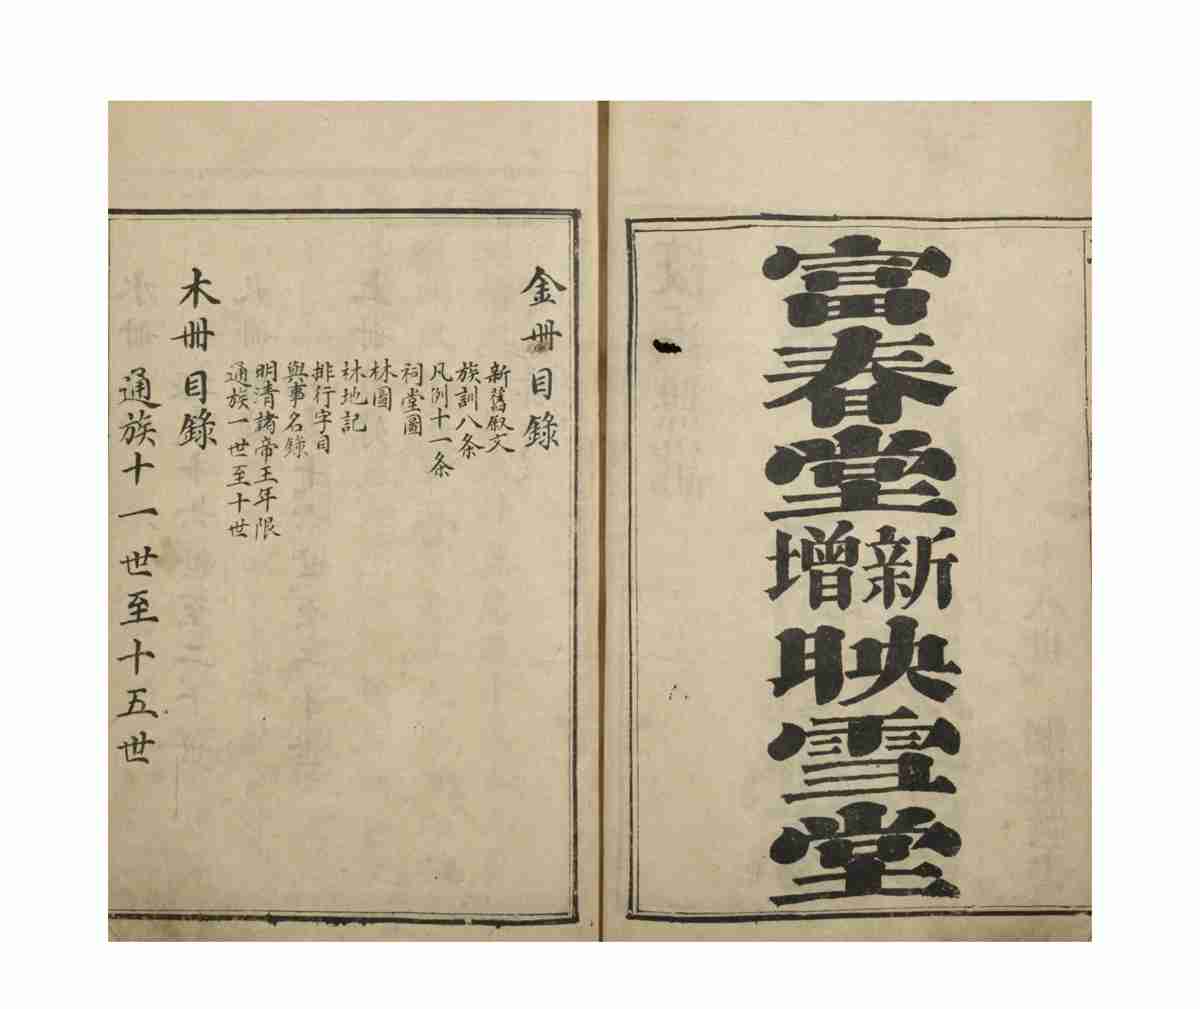 富春堂
新增
映雪堂
金冊目錄
新舊叙文
族訓八条
凡例十一条
祠堂圖
林圖
林地記
排行字目
與事名錄
明清諸帝王年限
通族一世至十世
木冊目錄
通族十一世至十五世